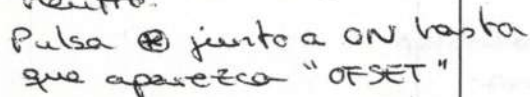 neutro.
Pulsa ⊛ junto a ON hasta
que aparezca "OFSET"